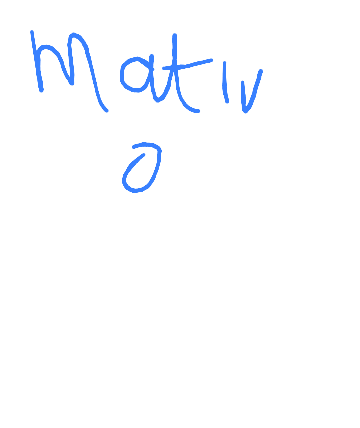 Mativ
o